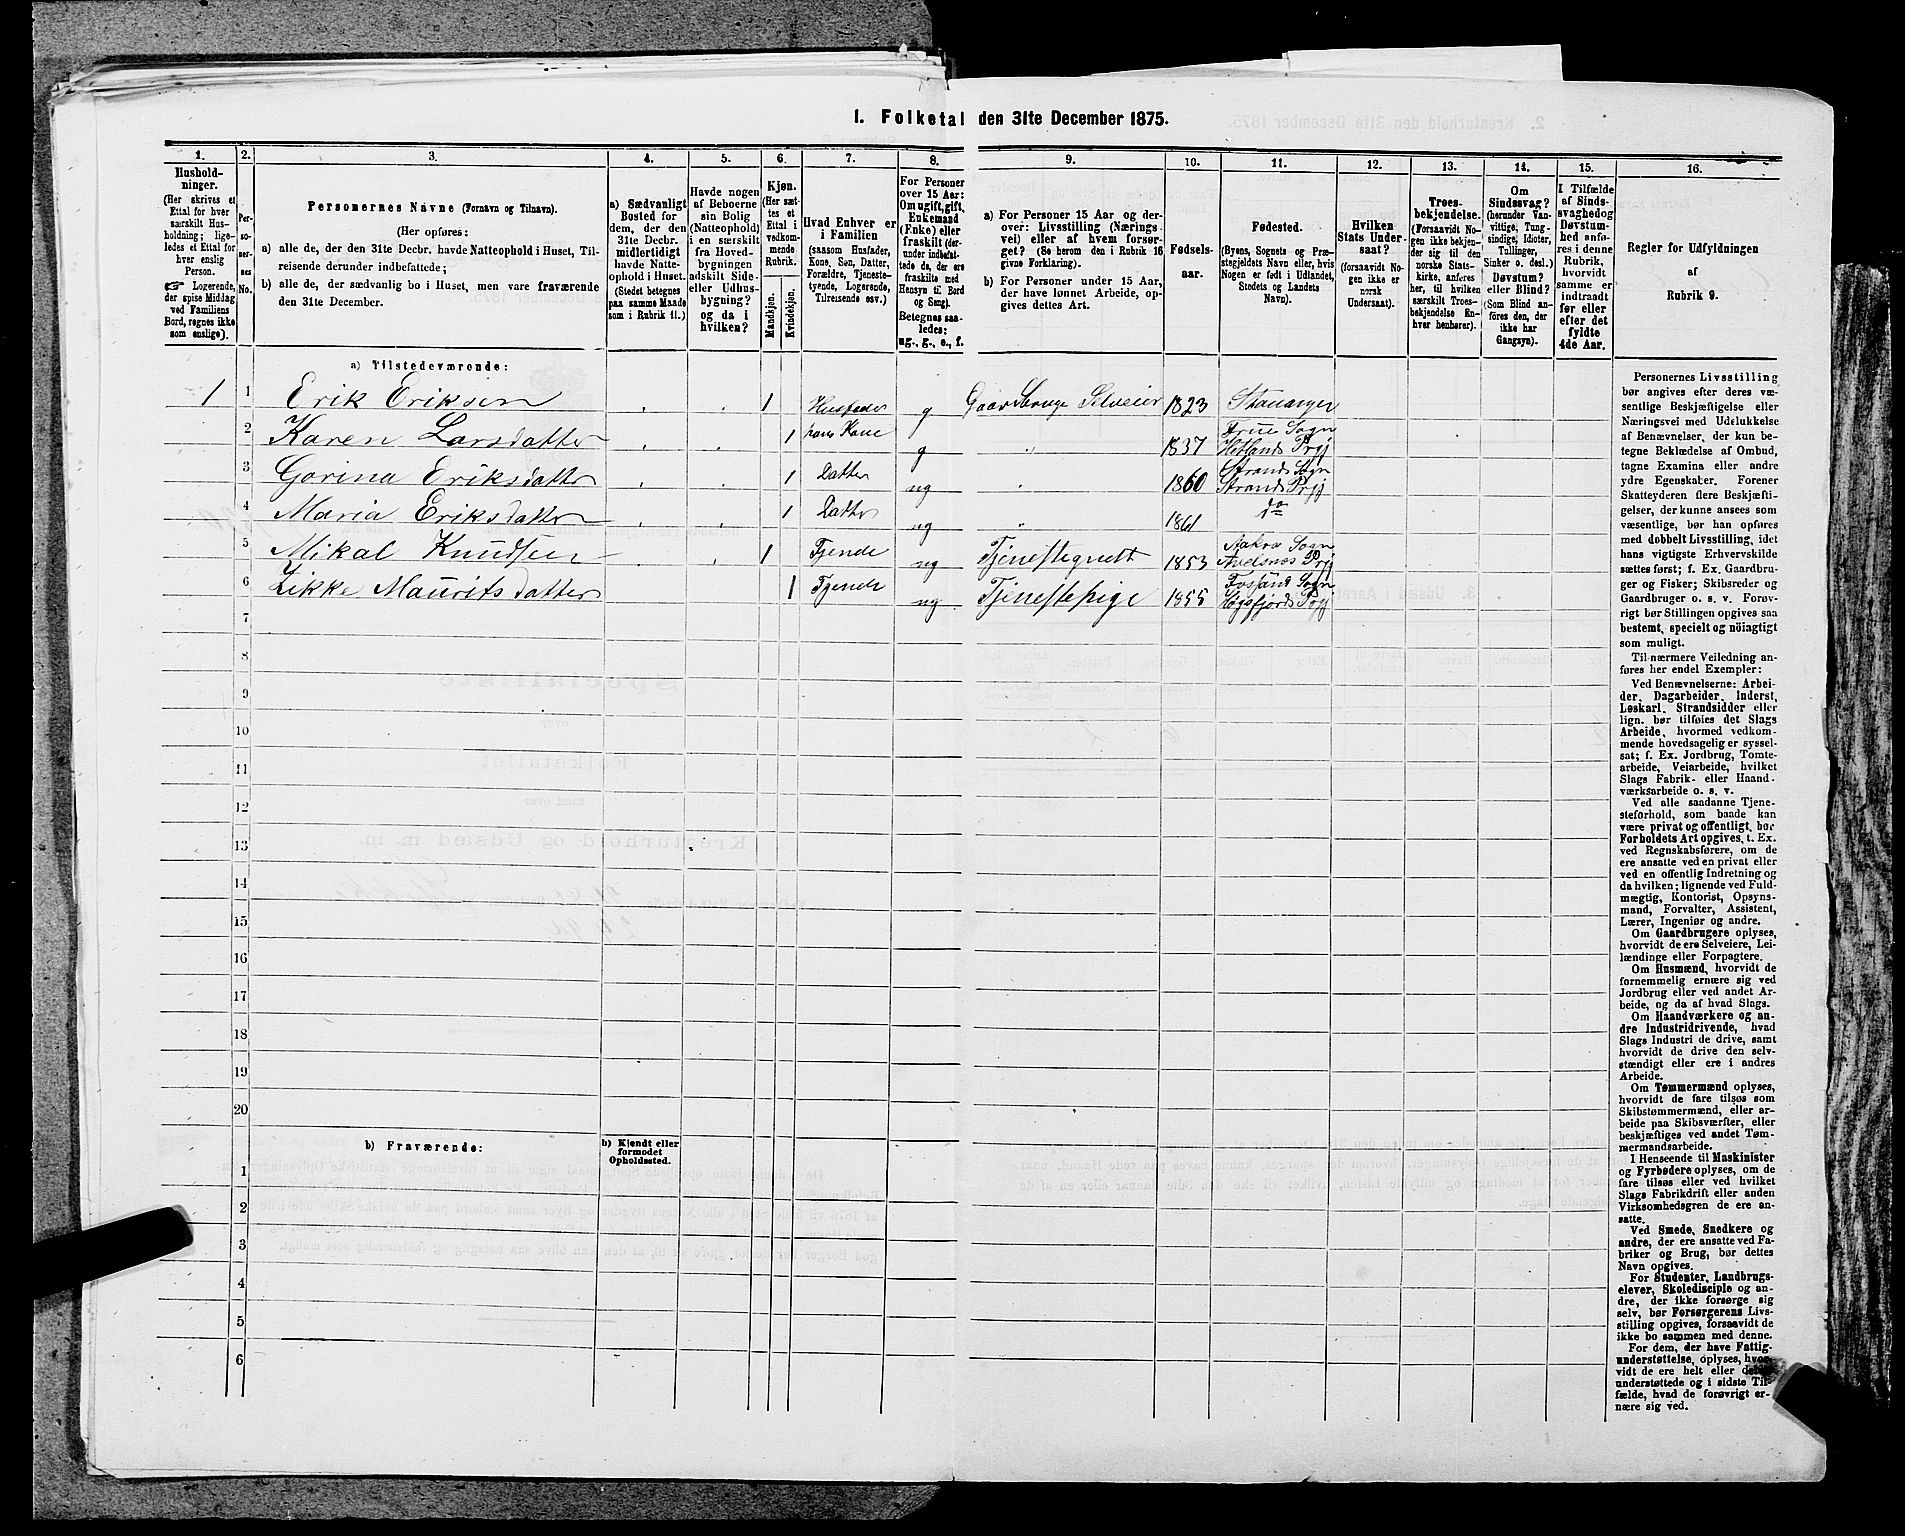 1. Folketal den 31te December 1875.
1. 2. 3. 4. 5. 6. 7. 8. 9. 10. 11. 12. 13. 14. 15. 16.
Hushold-
ninger.
(Her skrives et
Ettal for hver
særskilt Hus-
holdning; lige-
ledes et Ettal for
hver enslig
Person.
☞ Logerende,
der spise Middag
ved Familiens
Bord, regnes ikke
som enslige).
Per-
so-
ner-
nes
No.
Personernes Navne (Fornavn og Tilnavn).
(Her opføres:
a) alle de, der den 31te Decbr. havde Natteophold i Huset, Til-
reisende derunder indbefattede;
b) alle de, der sædvanlig bo i Huset, men vare fraværende
den 31te December.
a) Sædvanligt
Bosted for
dem, der den
31te Decbr.
midlertidigt
havde Natte-
ophold i Huset.
(Stedet betegnes
paa samme Maade
som i Rubrik 11.)
Havde nogen
af Beboerne
sin Bolig
(Natteophold)
i en særskilt
fra Hoved-
bygningen
adskilt Side-
eller Udhus-
bygning?
og da i
hvilken?
Kjøn.
(Her sæt-
tes et
Ettal i
vedkom-
mende
Rubrik.
Mandkjøn.
Kvindekjøn.
Hvad Enhver er
i Familien
(saasom Husfader,
Kone, Søn, Datter,
Forældre, Tjeneste-
tyende, Logerende,
Tilreisende osv.)
For Personer
over 15 Aar:
Om ugift, gift,
Enkemand
(Enke) eller
fraskilt (der-
under indbefat-
tede de, der ere
fraskilte med
Hensyn til Bord
og Seng).
Betegnes saa-
ledes:
ug., g., e., f.
a) For Personer 15 Aar og der-
over: Livsstilling (Nærings-
vei) eller af hvem forsør-
get? (Se herom den i Rubrik 16
givne Forklaring).
b) For Personer under 15 Aar,
der have lønnet Arbeide, op-
gives dettes Art.
Fødsels-
aar.
Fødested.
(Byens, Sognets og Præ-
stegjeldets Navn eller, hvis
Nogen er født i Udlandet,
Stedets og Landets
Navn).
Hvilken
Stats Under-
saat?
(forsaavidt No-
gen ikke er
norsk
Undersaat).
Troes-
bekjendelse.
(Forsaavidt No-
gen ikke bekjen-
der sig til den
norske Stats-
kirke, anføres
her, til hvilken
særskilt Troes-
bekjendelse En-
hver henhører).
Om
Sindssvag?
(herunder Van-
vittige, Tung-
sindige, Idioter,
Tullinger,
Sinker o. desl.)
Døvstum?
eller Blind?
(Som Blind an-
føres den, der
ikke har
Gangsyn).
I Tilfælde
af Sinds-
svaghed og
Døvstum-
hed anfø-
res i denne
Rubrik,
hvorvidt
samme er
indtraadt
før eller
efter det
fyldte
4de Aar.
Regler for Udfyldningen
af
Rubrik 9.
a) Tilstedeværende:
1 1 Erik Eriksen 1 Husfader g Gaardbruge Selveier 1823 Stavanger
2 Karen Larsdatter 1 hans Kone g 1837 Frue Sogn
Hetlands Prgj
3 Gorina Eriksdatter 1 Datter ug 1860 Strands Sogn
Strands Prgj
4 Maria Eriksdatter 1 Datter ug 1861 do
5 Mikal Knudsen 1 Tjener ug Tjenestegutt 1853 Aakra Sogn
Avalsnes Prgj
6 Zikke Mauritsdatter 1 Tjener ug Tjenestepige 1855 Fossand Sogn
Høgsfjords Prgj
7
8
9
10
11
12
13
14
15
16
17
18
19
20
b) Fraværende:
b) Kjendt eller
formodet
Opholdssted.
1
2
3
4
5
6
Personernes Livsstilling
bør angives efter deres væ-
sentlige Beskjæftigelse eller
Næringsvei med Udelukkelse
af Benævnelser, der kun be-
tegne Beklædelse af Ombud,
tagne Examina eller andre
ydre Egenskaber. Forener
Skatteyderen flere Beskjæfti-
gelser, der kunne ansees som
væsentlige, bør han opføres
med dobbelt Livsstilling, idet
hans vigtigste Erhvervskilde
sættes først; f. Ex. Gaardbru-
ger og Fisker; Skibsreder og
Gaardbruger o. s. v. Forøv-
rigt bør Stillingen opgives saa
bestemt, specielt og nöiagtigt
som muligt.
Til nærmere Veiledning an-
føres her endel Exempler:
Ved Benævnelserne: Arbei-
der, Dagarbeider, Inderst,
Løskarl, Strandsidder eller
lign. bør tilføies det Slags
Arbeide, hvormed vedkom-
mende hovedsagelig er syssel-
sat; f. Ex. Jordbrug, Tomte-
arbeide, Veiarbeide, hvilket
Slags Fabrik- eller Haand-
værksarbeide o. s. v.
Ved alle saadanne Tjene-
steforhold, som baade kan
være privat og offentligt, bør
Forholdets Art opgives, t. Ex.
ved Regnskabsførere, om de
ere ansatte ved en privat eller
ved en offentlig Indretning og
da hvilken; lignende ved Fuld-
mægtig, Kontorist, Opsyns-
mand, Forvalter, Assistent,
Lærer, Ingeniør og andre.
Om Gaardbrugere oplyses,
hvorvidt de ere Selveiere, Lei-
lændinge eller Forpagtere.
Om Husmænd, hvorvidt de
fornemmelig ernære sig ved
Jordbrug eller ved andet Ar-
beide, og da af hvad Slags.
Om Haandværkere og an-
dre Industridrivende, hvad
Slags Industri de drive, samt
hvorvidt de drive den selv-
stændigt eller ere i andres
Arbeide.
Om Tømmermænd oplyses,
hvorvidt de fare tilsøs som
Skibstømmermænd, eller ar-
beide paa Skibsværfter, eller
beskjæftiges ved andet Tøm-
mermandsarbeide.
I Henseende til Maskinister
og Fyrbødere oplyses, om de
fare tilsøs eller ved hvilket
Slags Fabrikdrift eller anden
Virksomhedsgren de ere an-
satte.
Ved Smede, Snedkere og
andre, der ere ansatte ved Fa-
briker og Brug, bør dettes
Navn opgives.
For Studenter, Landbrugs-
elever, Skoledisciple og an-
dre, der ikke forsørge sig
selv, bør Forsørgerens Livs-
stilling opgives, forsaavidt de
ikke bo sammen med denne.
For dem, der have Fattig-
understøttelse, oplyses, hvor-
vidt de ere helt eller delvis
understøttede og i sidste Til-
fælde, hvad de forøvrigt er-
nære sig ved.